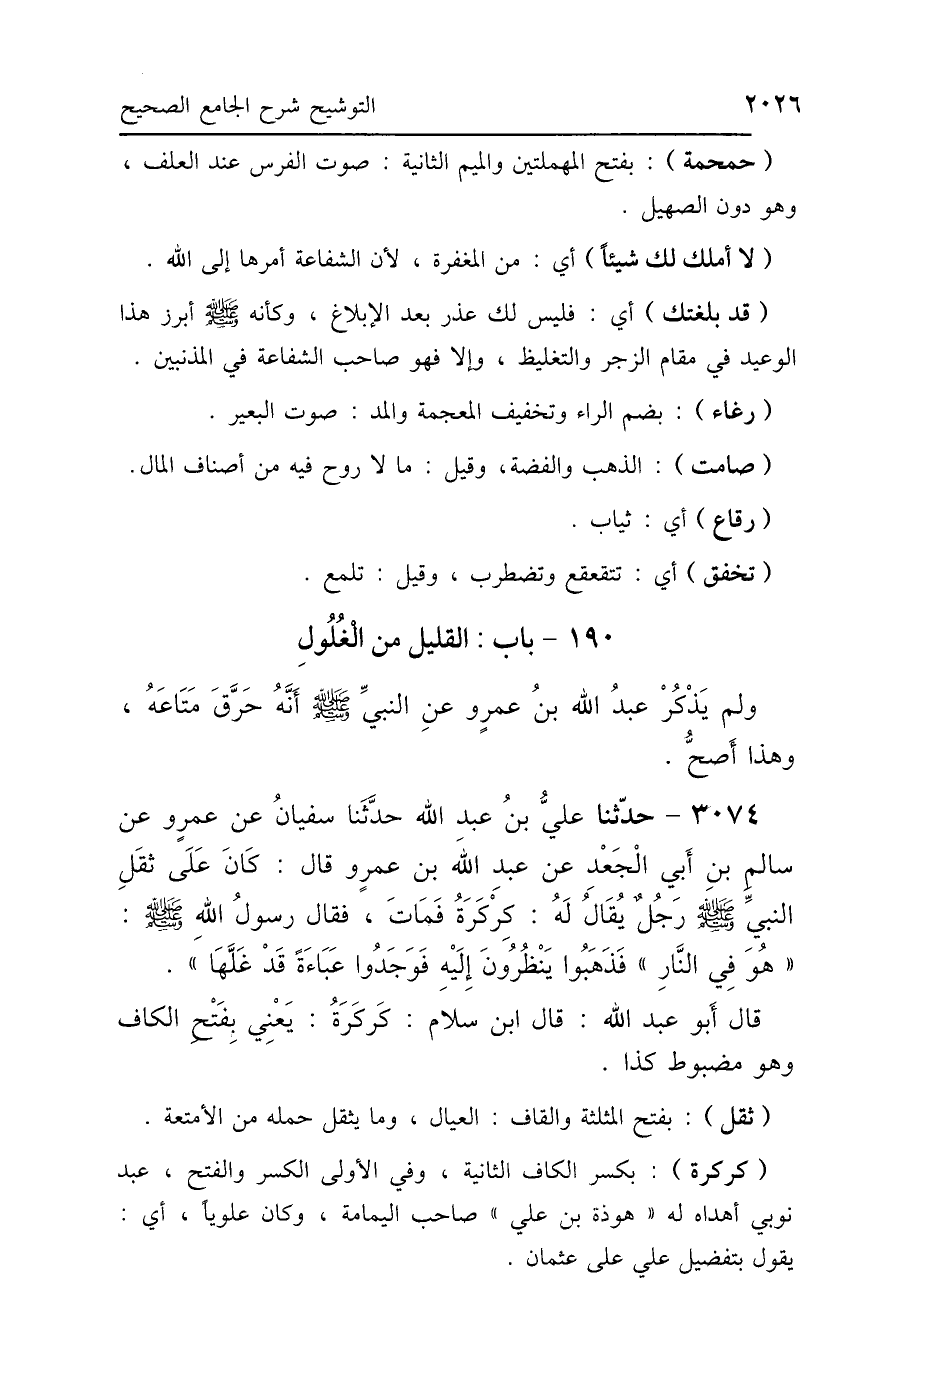 ٢٠٢٦ التوشيح شرح الجامع الصحيح
( حمحمة ) : بفتح المهملتين والميم الثانية : صوت الفرس عند العلف ،
وهو دون الصهيل .
( لا أملك لك شيئاً ) أي : من المغفرة ، لأن الشفاعة أمرها إلى الله .
( قد بلغتك ) أي : فليس لك عذر بعد الإبلاغ ، وكأنه ﷺ أبرز هذا
الوعيد في مقام الزجر والتغليظ ، وإلا فهو صاحب الشفاعة في المذنبين .
( رغاء ) : بضم الراء وتخفيف المعجمة والمد : صوت البعير .
( صامت ) : الذهب والفضة، وقيل : ما لا روح فيه من أصناف المال.
( رقاع ) أي : ثياب .
( تخفق ) أي : تتقعقع وتضطرب ، وقيل : تلمع .
١٩٠ – باب : القليل من الْغُلُولِ
ولم يَذْكُرْ عبدُ الله بنُ عمرٍو عنِ النبيِّ ﷺ أَنَّهُ حَرَّقَ مَتَاعَهُ ،
وهذا أَصحُّ .
٣٠٧٤ – حدّثنا عليُّ بنُ عبدِ الله حدَّثَنا سفيانُ عن عمرٍو عن
سالمِ بنِ أبي الْجَعْدِ عن عبدِ الله بن عمرٍو قال : كَانَ عَلَى ثَقَلِ
النبيِّ ﷺ رَجُلٌ يُقَالُ لَهُ : كِرْكَرَةُ فَمَاتَ ، فقال رسولُ اللهِ ﷺ :
« هُوَ فِي النَّارِ » فَذَهَبُوا يَنْظُرُونَ إِلَيْهِ فَوَجَدُوا عَبَاءَةً قَدْ غَلَّهَا » .
قال أَبو عبد الله : قال ابن سلام : كَركَرَةُ : يَعْنِي بِفَتْحِ الكاف
وهو مضبوط كذا .
( ثقل ) : بفتح المثلثة والقاف : العيال ، وما يثقل حمله من الأمتعة .
( كركرة ) : بكسر الكاف الثانية ، وفي الأولى الكسر والفتح ، عبد
نوبي أهداه له « هوذة بن علي » صاحب اليمامة ، وكان علوياً ، أي :
يقول بتفضيل علي على عثمان .